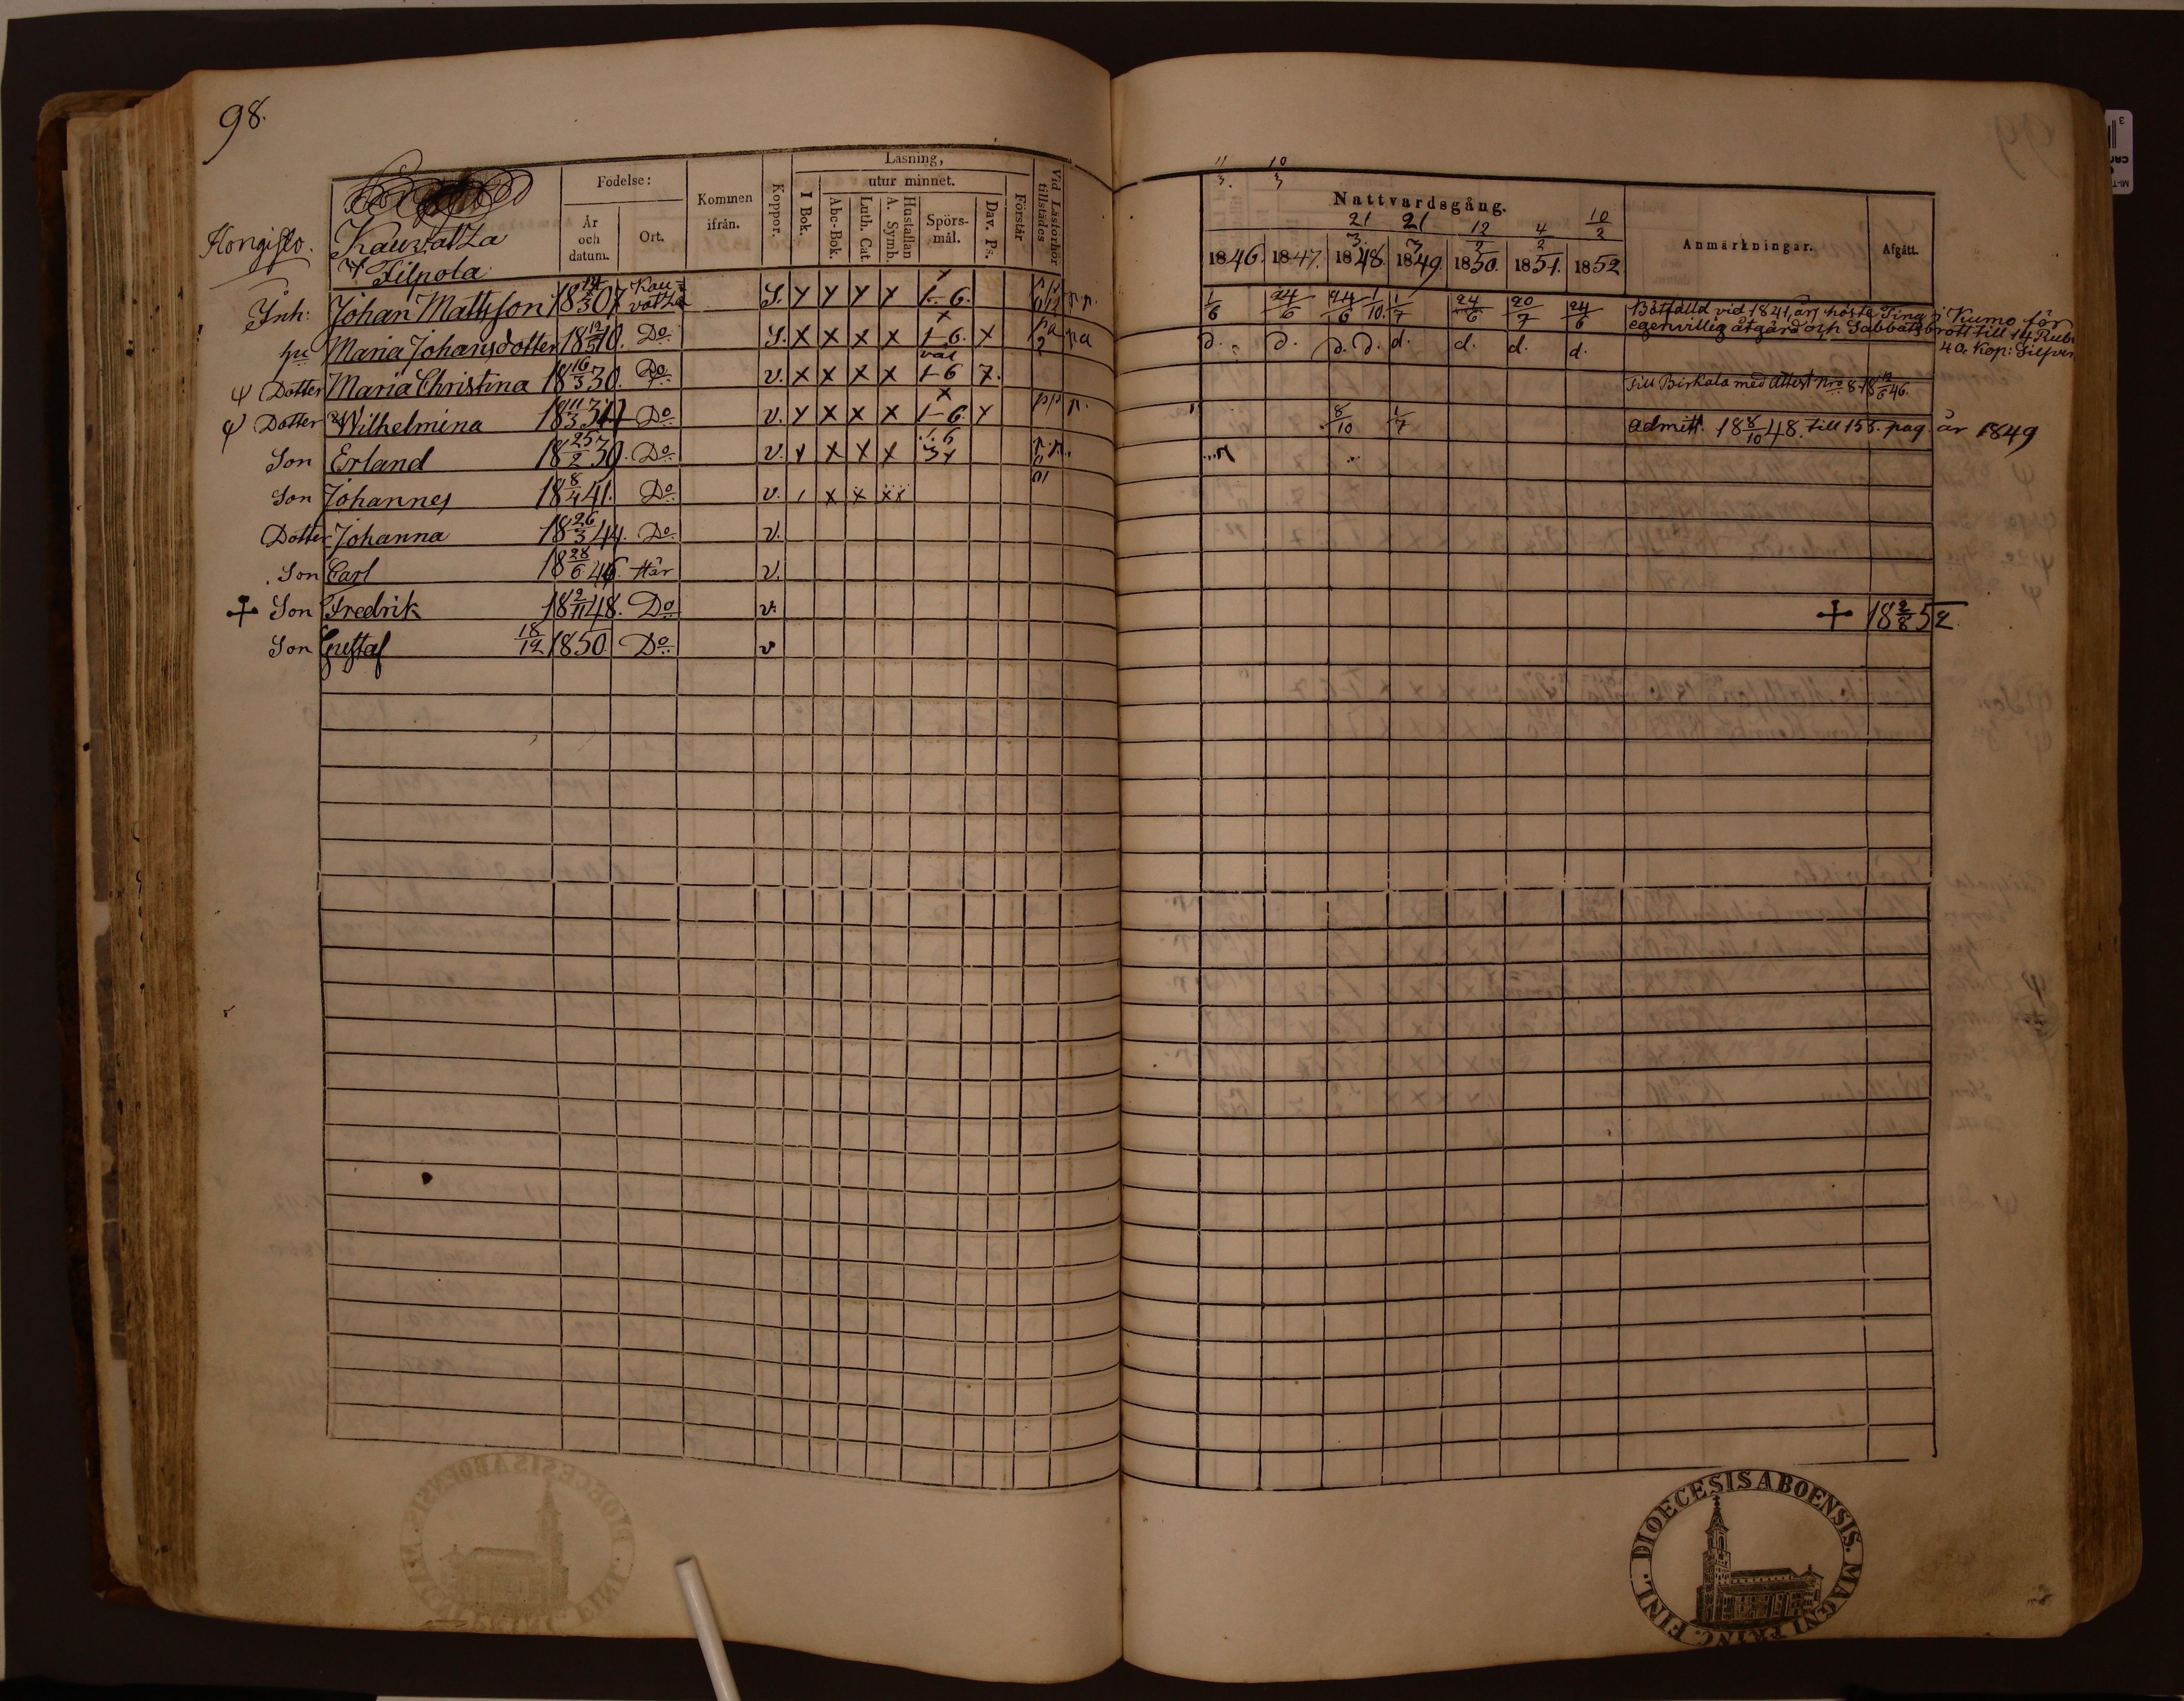 98.
Läsning,
Födelse:
utur minnet.
Kommen ifrån.
År och datum.
Ort.
Koppor.
I Bok.
Abc-Bok.
Luth. Cat.
Hustaflan A. Symb.
Spörs-mål.
Dav. Ps.
Förstår
Vid Läsförhör tillstädes
Kongisto.
Kauvatza
Filpola
Inh: Johan Mattsson Kauvatza S. x x x x 1-6.
hu Maria Johansdotter 18 10. Do S. x x x x 1-6. x
Dotter Maria Christina 18 16/3 30. Do v. x x x x 1-6 7.
Dotter Wilhelmina Do v. x x x x 1-6 x
Son Erland 18 25/2 39. Do v. x x x x
Son Johannes 18 8/4 41. Do v. x x
Dotter Johanna 18 26/3 44. Do v.
Son Carl 18 28/6 46. Här v.
+ Son Fredrik 18 2/11 48. Do v.
Son Gustaf 18/12 1850 Do v
11/3. 10/3
Nattvardsgång.
21/3. 21/3 12/2 4/2 10/2
1846. 1847. 1848. 1849. 1850. 1851. 1852.
Anmärkningar.
Afgått.
1/6 24/6 24/6 1/10. 1/7 24/6 20/7 24/6
Bötfälld vid 1841 års höste Ting i Kumo för
egenvillig åtgärd och Sabbatsbrott till 14 Rub
40. Kop: Silfver
d. d. d. d. d. d. d. d.
Till Birkala med Attest Nro 8
8/10 1/7
admitt. 18 8/10 48. till 155. pag. år 1849
+ 18 2/8 52
DIOECESIS ABOENSIS. MAGNI PRINC. FINL.